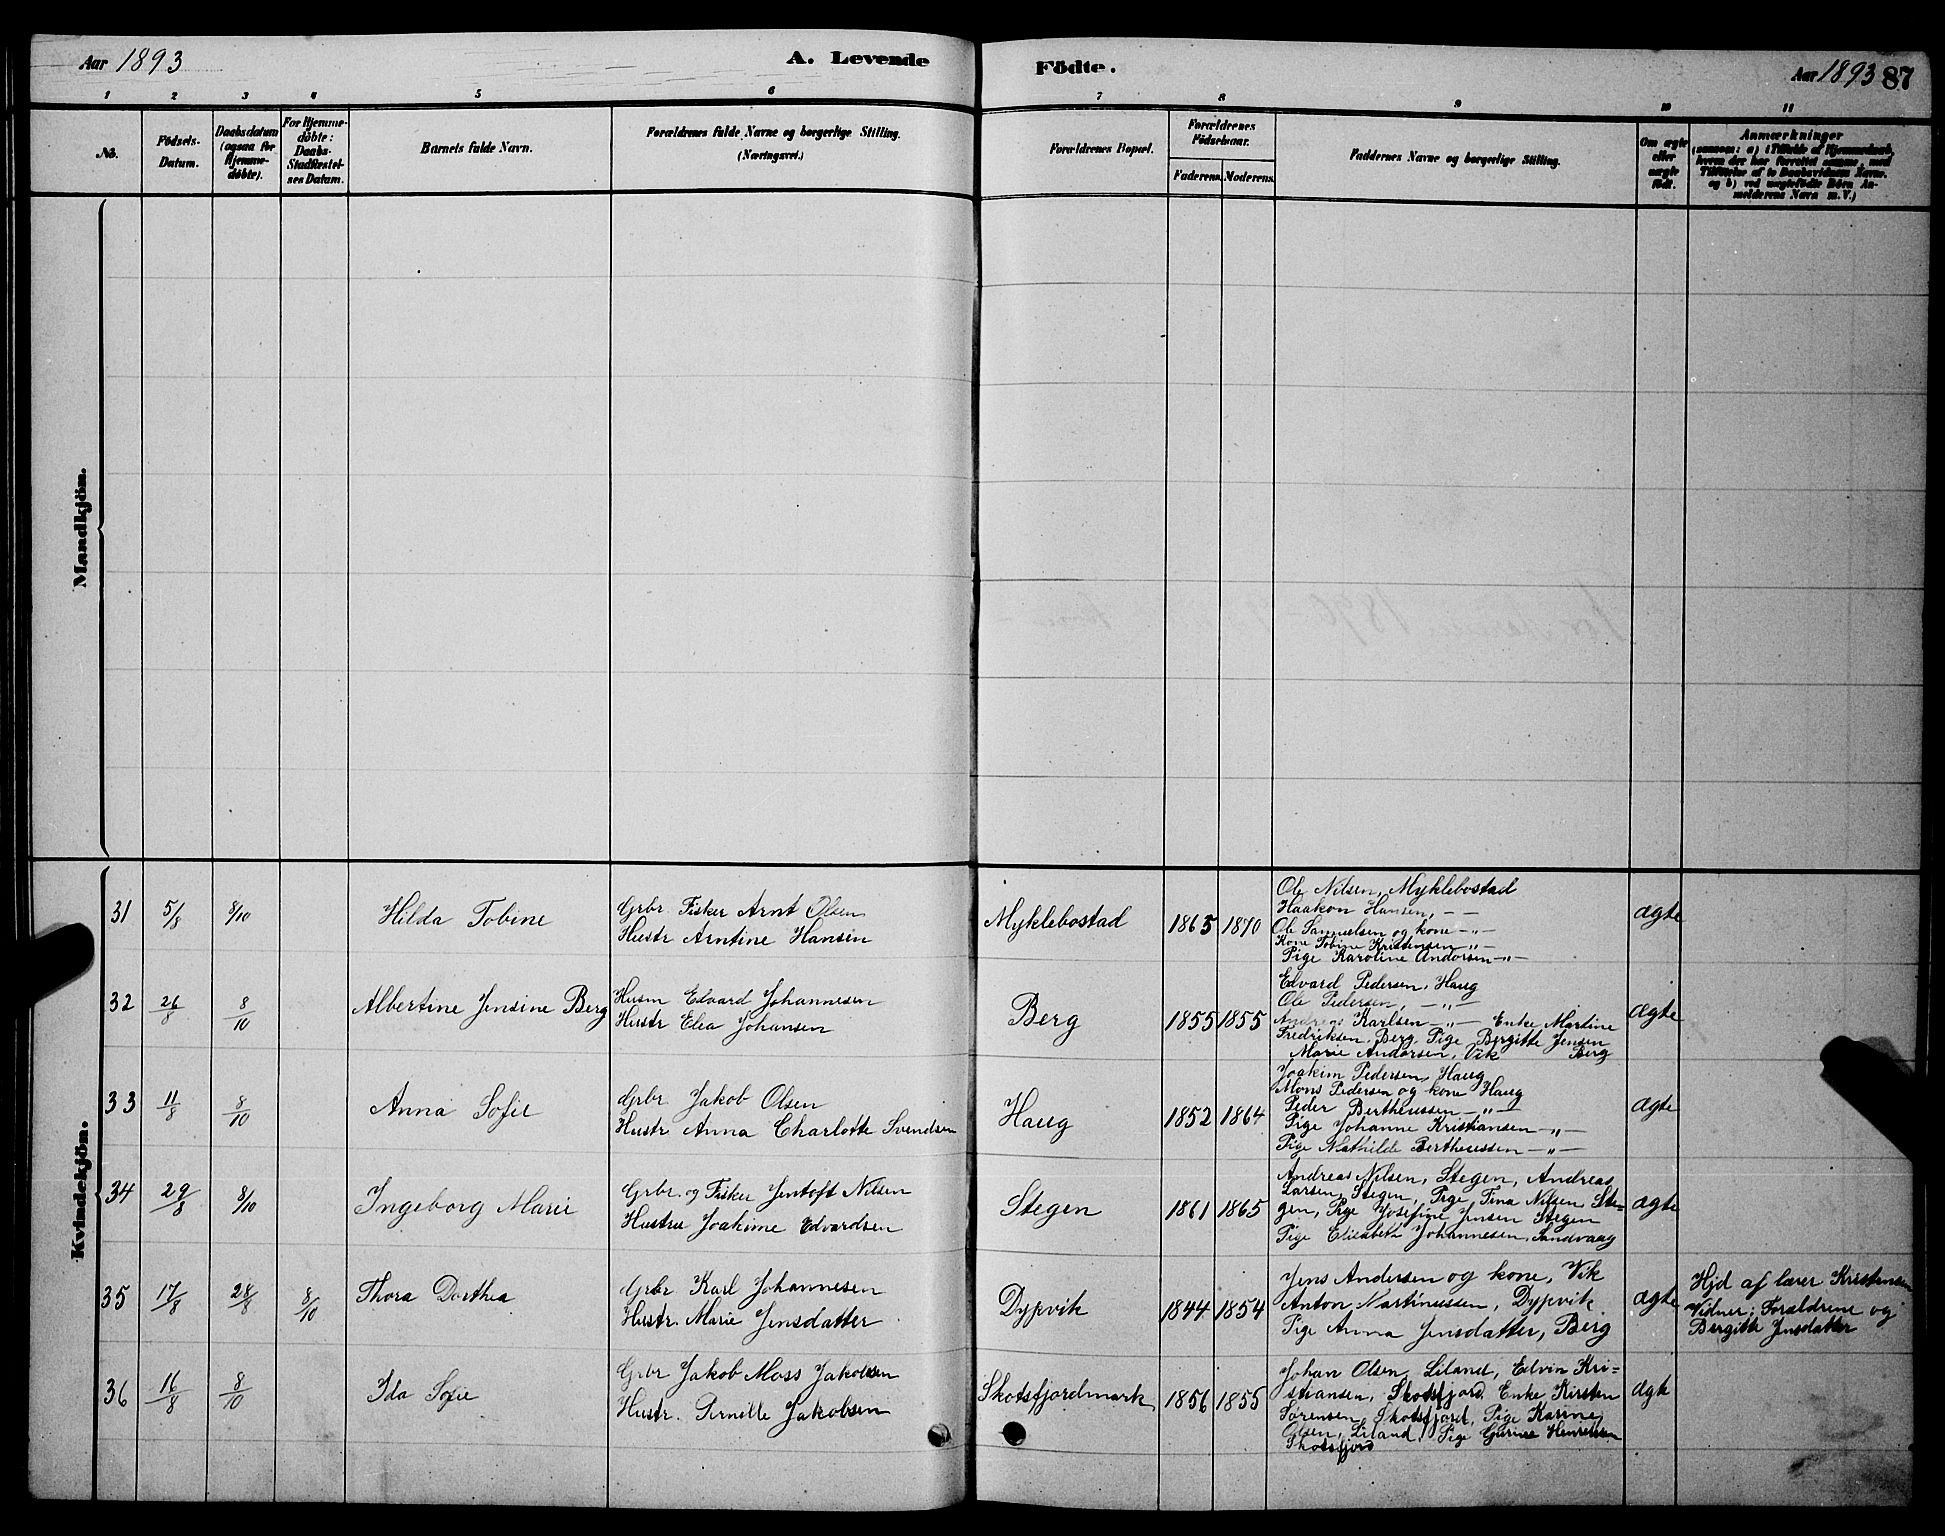 Aar 1893
A. Levende
Födte.
Aar 1893 87
1 2 3 4 5 6 7 8 9 10 11
No.
Födsels-
Datum.
Daabsdatum
(ogsaa for
Hjemme-
döbte).
For Hjemme-
döbte:
Daabs-
Stadfæstel-
ses Datum.
Barnets fulde Navn.
Forældrenes fulde Navne og borgerlige Stilling.
(Næringsvei.)
Forældrenes Bopæl.
Forældrenes
Födselsaar.
Faderens. Moderens.
Faddernes Navne og borgerlige Stilling.
Om ægte
eller
uægte
födt.
Anmærkninger
(saasom: a) i Tilfælde af Hjemmedaab,
hvem der har forrettet samme, med
Tilföielse af to Daabsvidners Navne.
og b) ved uægtefödte Börn An-
melderens Navn m.V.)
Mandkjön.
Kvindekjön.
31 5/8 8/10 Hilda Tobine
Grbr. Fisker Arnt Olsen
Hustr Arntine Hansen
Myklebostad 1865 1870
Ole Nilsen, Myklebostad
Haakon Hansen, — —
Ole Samuelsen og kone —"—
Kone Tobine Kristensen —"—
Pige Karoline Andorsen —"—
ægte
32 26/8 8/10 Albertine Jensine Berg
Husm Edvard Johannesen
Hustr Elea Johansen
Berg 1855 1855
Edvard Pedersen, Haug
Ole Pedersen, —"—
Andreas Karlsen —"— Enke Martine
Fredriksen, Berg, Pige Bergitte Jensen
Marie Andorsen, Vik Berg
ægte
33 11/8 8/10 Anna Sofie
Grbr Jakob Olsen
Hustr Anna Charlotte Svendsen
Haug 1852 1864
Joakim Pedersen, Haug
Mons Pedersen og kone Haug
Peder Bertheussen —"—
Pige Johanne Kristiansen —"—
Pige Mathilde Bertheussen —"—
ægte
34 29/8 8/10 Ingeborg Marie
Grbr. og Fisker Jentoft Nilsen
Hustru Joakime Edvardsen
Stegen 1861 1865
Andreas Nilsen, Stegen, Andreas
Larsen, Stegen, Pige, Tina Nilsen Ste-
gen, Pige Josefine Jensen Stegen
Pige Elisabeth Johannesen, Sandvaag
ægte
35 17/8 28/8 8/10 Thora Dorthea
Grbr Karl Johannesen
Hustr. Marie Jensdatter
Dypvik 1844 1854
Jens Andersen og kone, Vik
Anton Martinussen, Dypvik
Pige Anna Jensdatter, Berg
ægte
Hjd af lærer Kristensen
Vidner: Forældrene og
Bergitte Jensdatter
36 16/8 8/10 Ida Sofie
Grbr Jakob Moss Jakobsen
Hustr. Pernille Jakobsen
Skotsfjordmark 1856 1855
Johan Olsen, Liland, Edvin Kri-
stiansen, Skotsfjord Enke Kirsten
Sörensen, Skotsfjord, Pige Karine
Olsen, Liland, Pige Gurine Henriksen
Skotsfjord
ægte